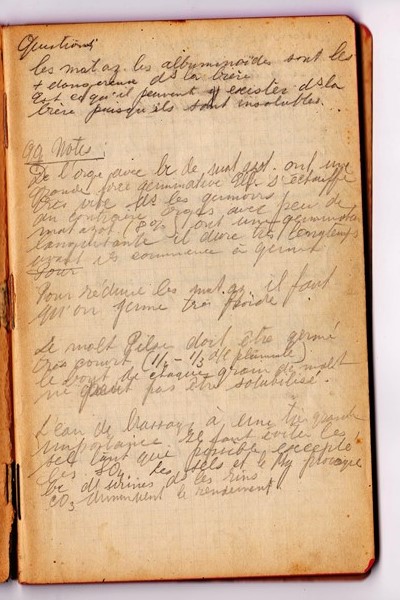 Questions
les mat az. les albuminoïdes sont les
+ dangereux ds la bière
Est ce qu'il peuvent y exister ds la
bière puisqu'ils sont insolubles.
qq Notes:
De l'orge avec bc de mat azot. ont une
grande force germinative Elle s'échauffe
très vite ds les germoirs
au contraire orges avec peu de
mat azot ont une germination
languissante il dure très longtemps
avant de commencer à germer
Pour réduire les mat. az. il faut
qu'on germe très froide
Le malt Pilsen doit être germé
très court (1/2 - 1/3 de plumule)
le bout de chaque grain de malt
ne peut pas être solubilisé.
L'eau de brassage à une très grande
importance. Il faut éviter les
sels tant que possible, excepté
les sels et le Mg provoque
bc d'urines ds les reins
CO3 diminuent le rendement